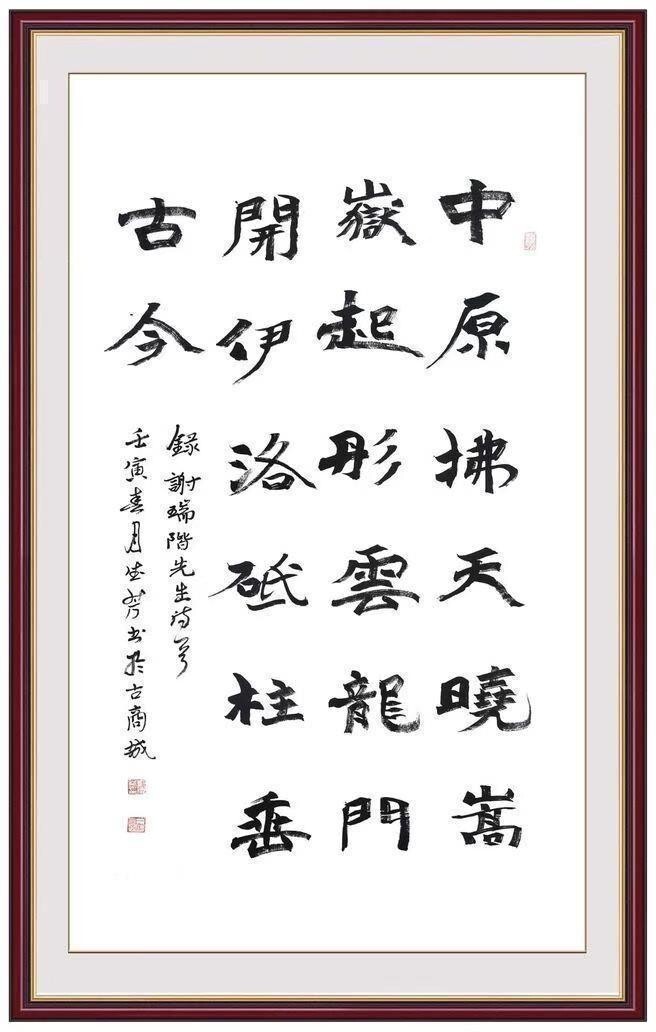 中原拂天曉嵩
嶽起彤雲龍門
開伊洛砥柱垂
古今
錄謝瑞階先生詩
壬寅春月 書於古商城